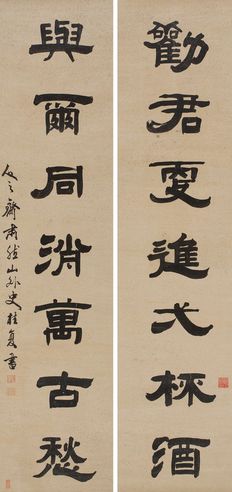 勸君更進弌杯酒
與爾同消萬古愁
山外史桂复書